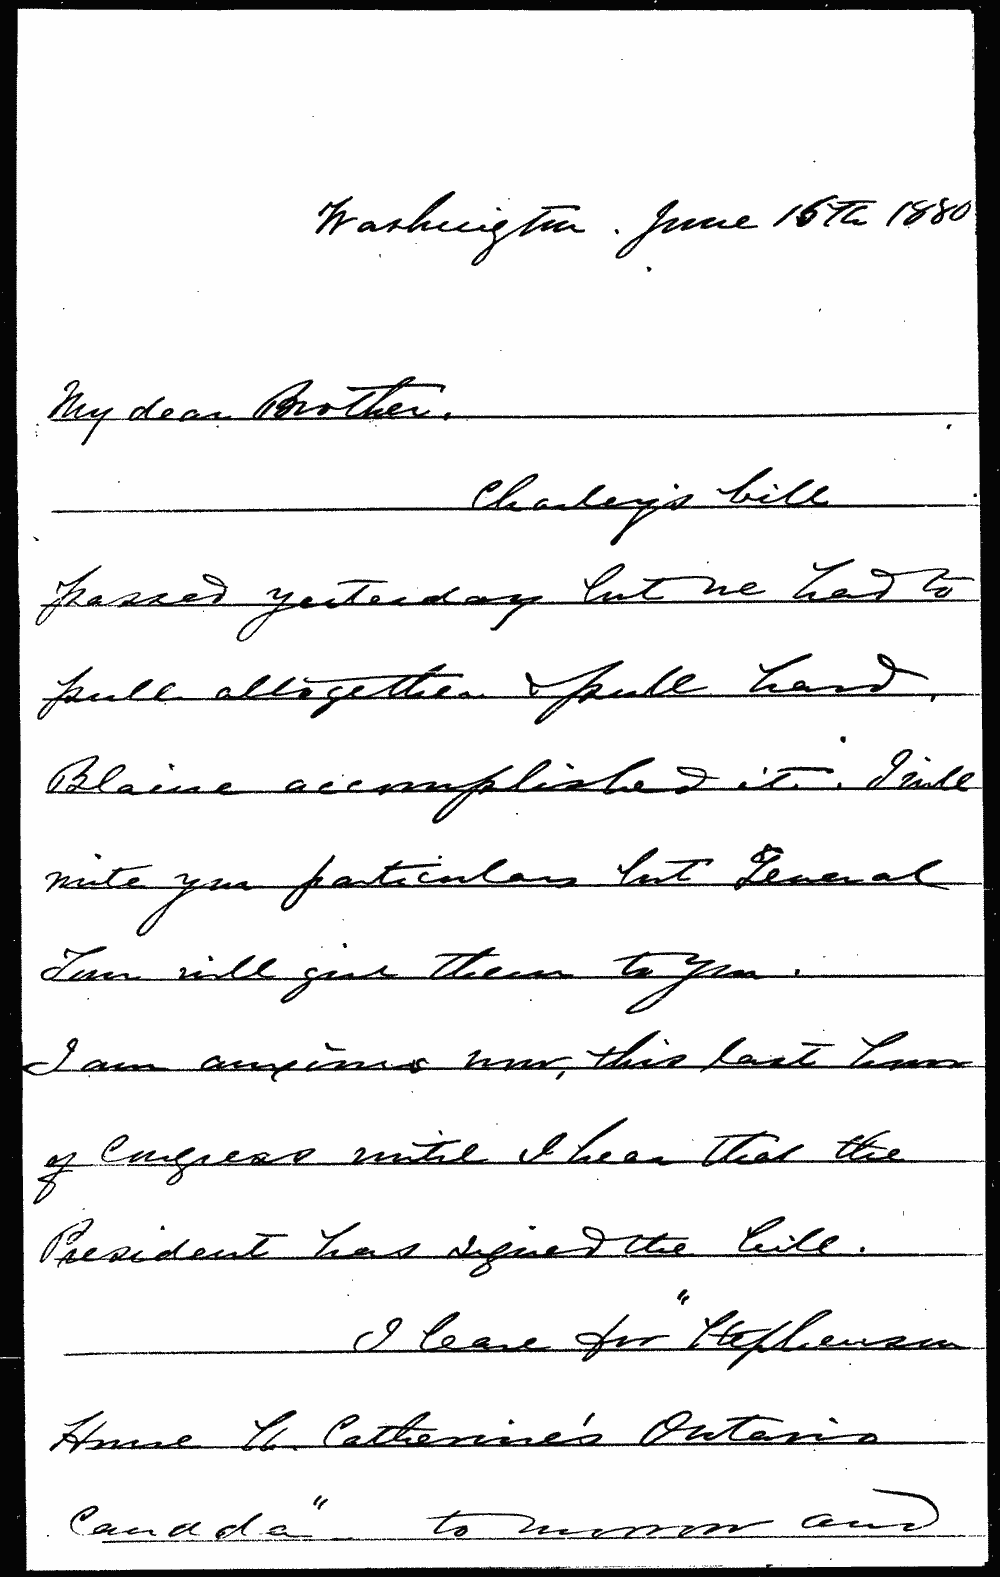 Washington. June 16th 1880
My dear Brother.
Charley's bill
passed yesterday but we had to
pull altogether & pull hard,
Blaine accomplished it. I will
write you particulars but General
Tom will give them to you.
I am anxious now, this last hour
of Congress until I hear that the
President has signed the bill.
I leave for "Stephenson
House St. Catherine's Ontario
Candda" to morrow and